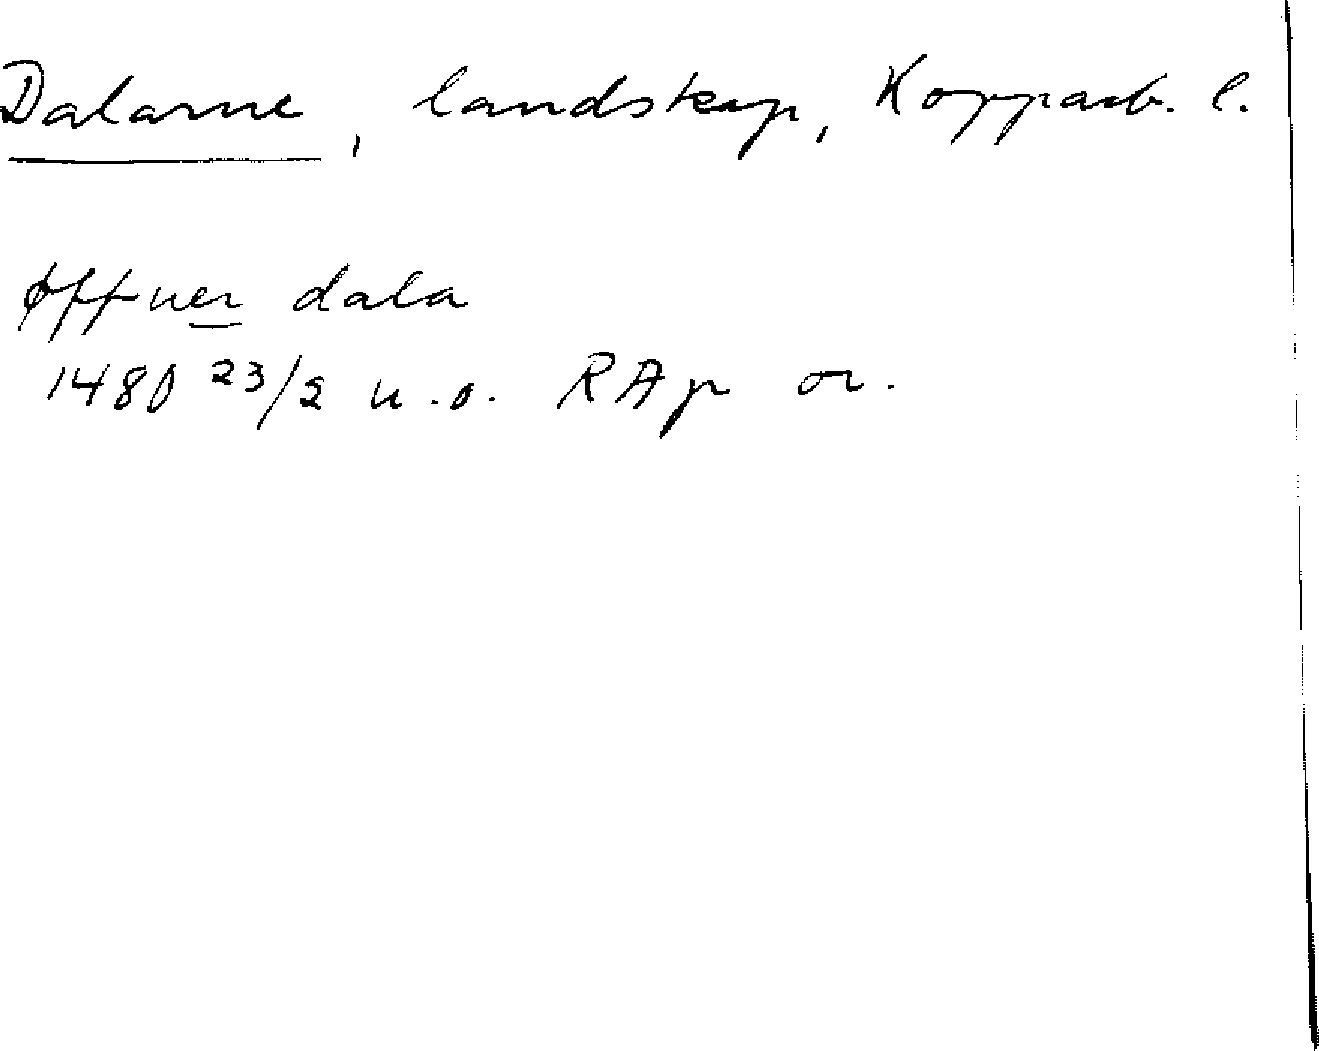 Dalarne, landskap, Kopparb. l.
øffner dala
1480 23/2 u.o. RAp or.